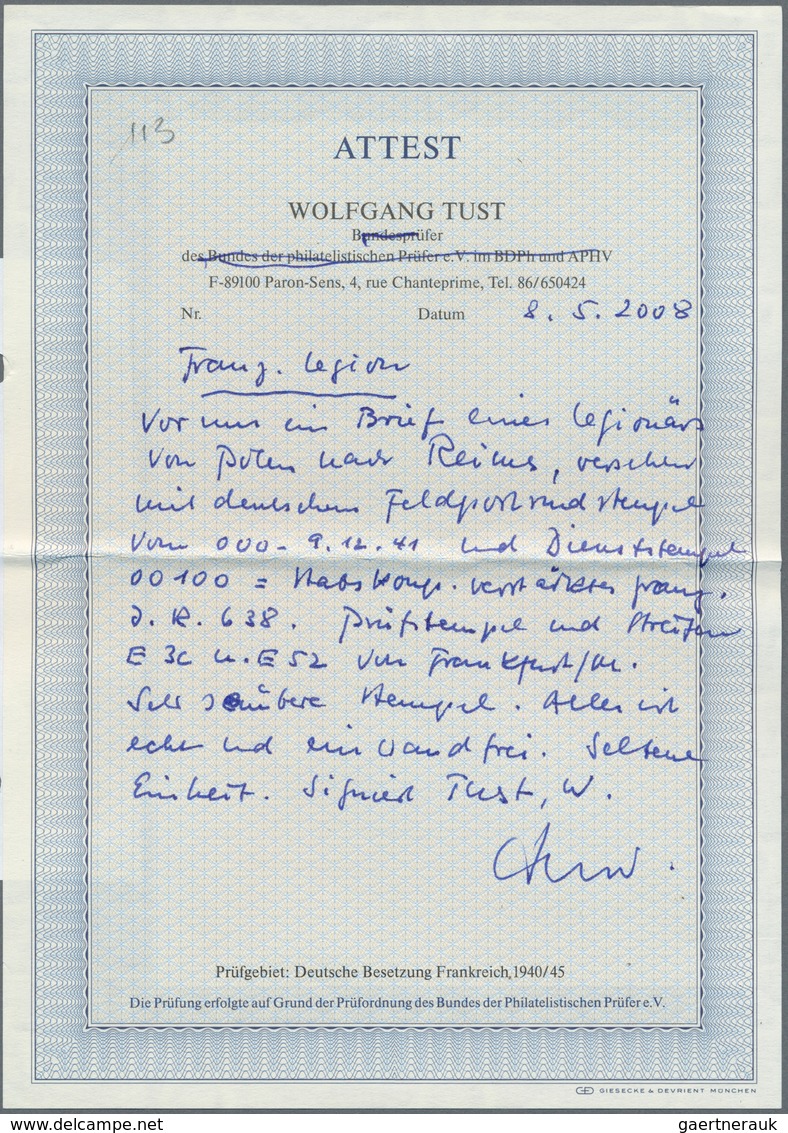 113
ATTEST
WOLFGANG TUST
Bundesprüfer
des Bundes der philatelistischen Prüfer e.V. im BDPh und APHV
F-89100 Paron-Sens, 4, rue Chanteprime, Tel. 86/650424
Nr. Datum 8. 5. 2008
Franz. Legion
Vor uns ein Brief eines Legionärs
von Polen nach Reims, versehen
mit deutschem Feldpostrundstempel
vom 000 - 9.12.41 und Dienststempel
00100 = Stabskomp. verstärktes franz.
J. R. 638. Prüfstempel und Streifen
E 3C u. E 52 von Frankfurt/M.
Sehr saubere Stempel. Alles ist
echt und einwandfrei. Seltene
Einheit. Signiert Tust, W.
Prüfgebiet: Deutsche Besetzung Frankreich 1940/45
Die Prüfung erfolgte auf Grund der Prüfordnung des Bundes der Philatelistischen Prüfer e.V.
GD GIESECKE & DEVRIENT MÜNCHEN
delcampe.net
gaertnerauk